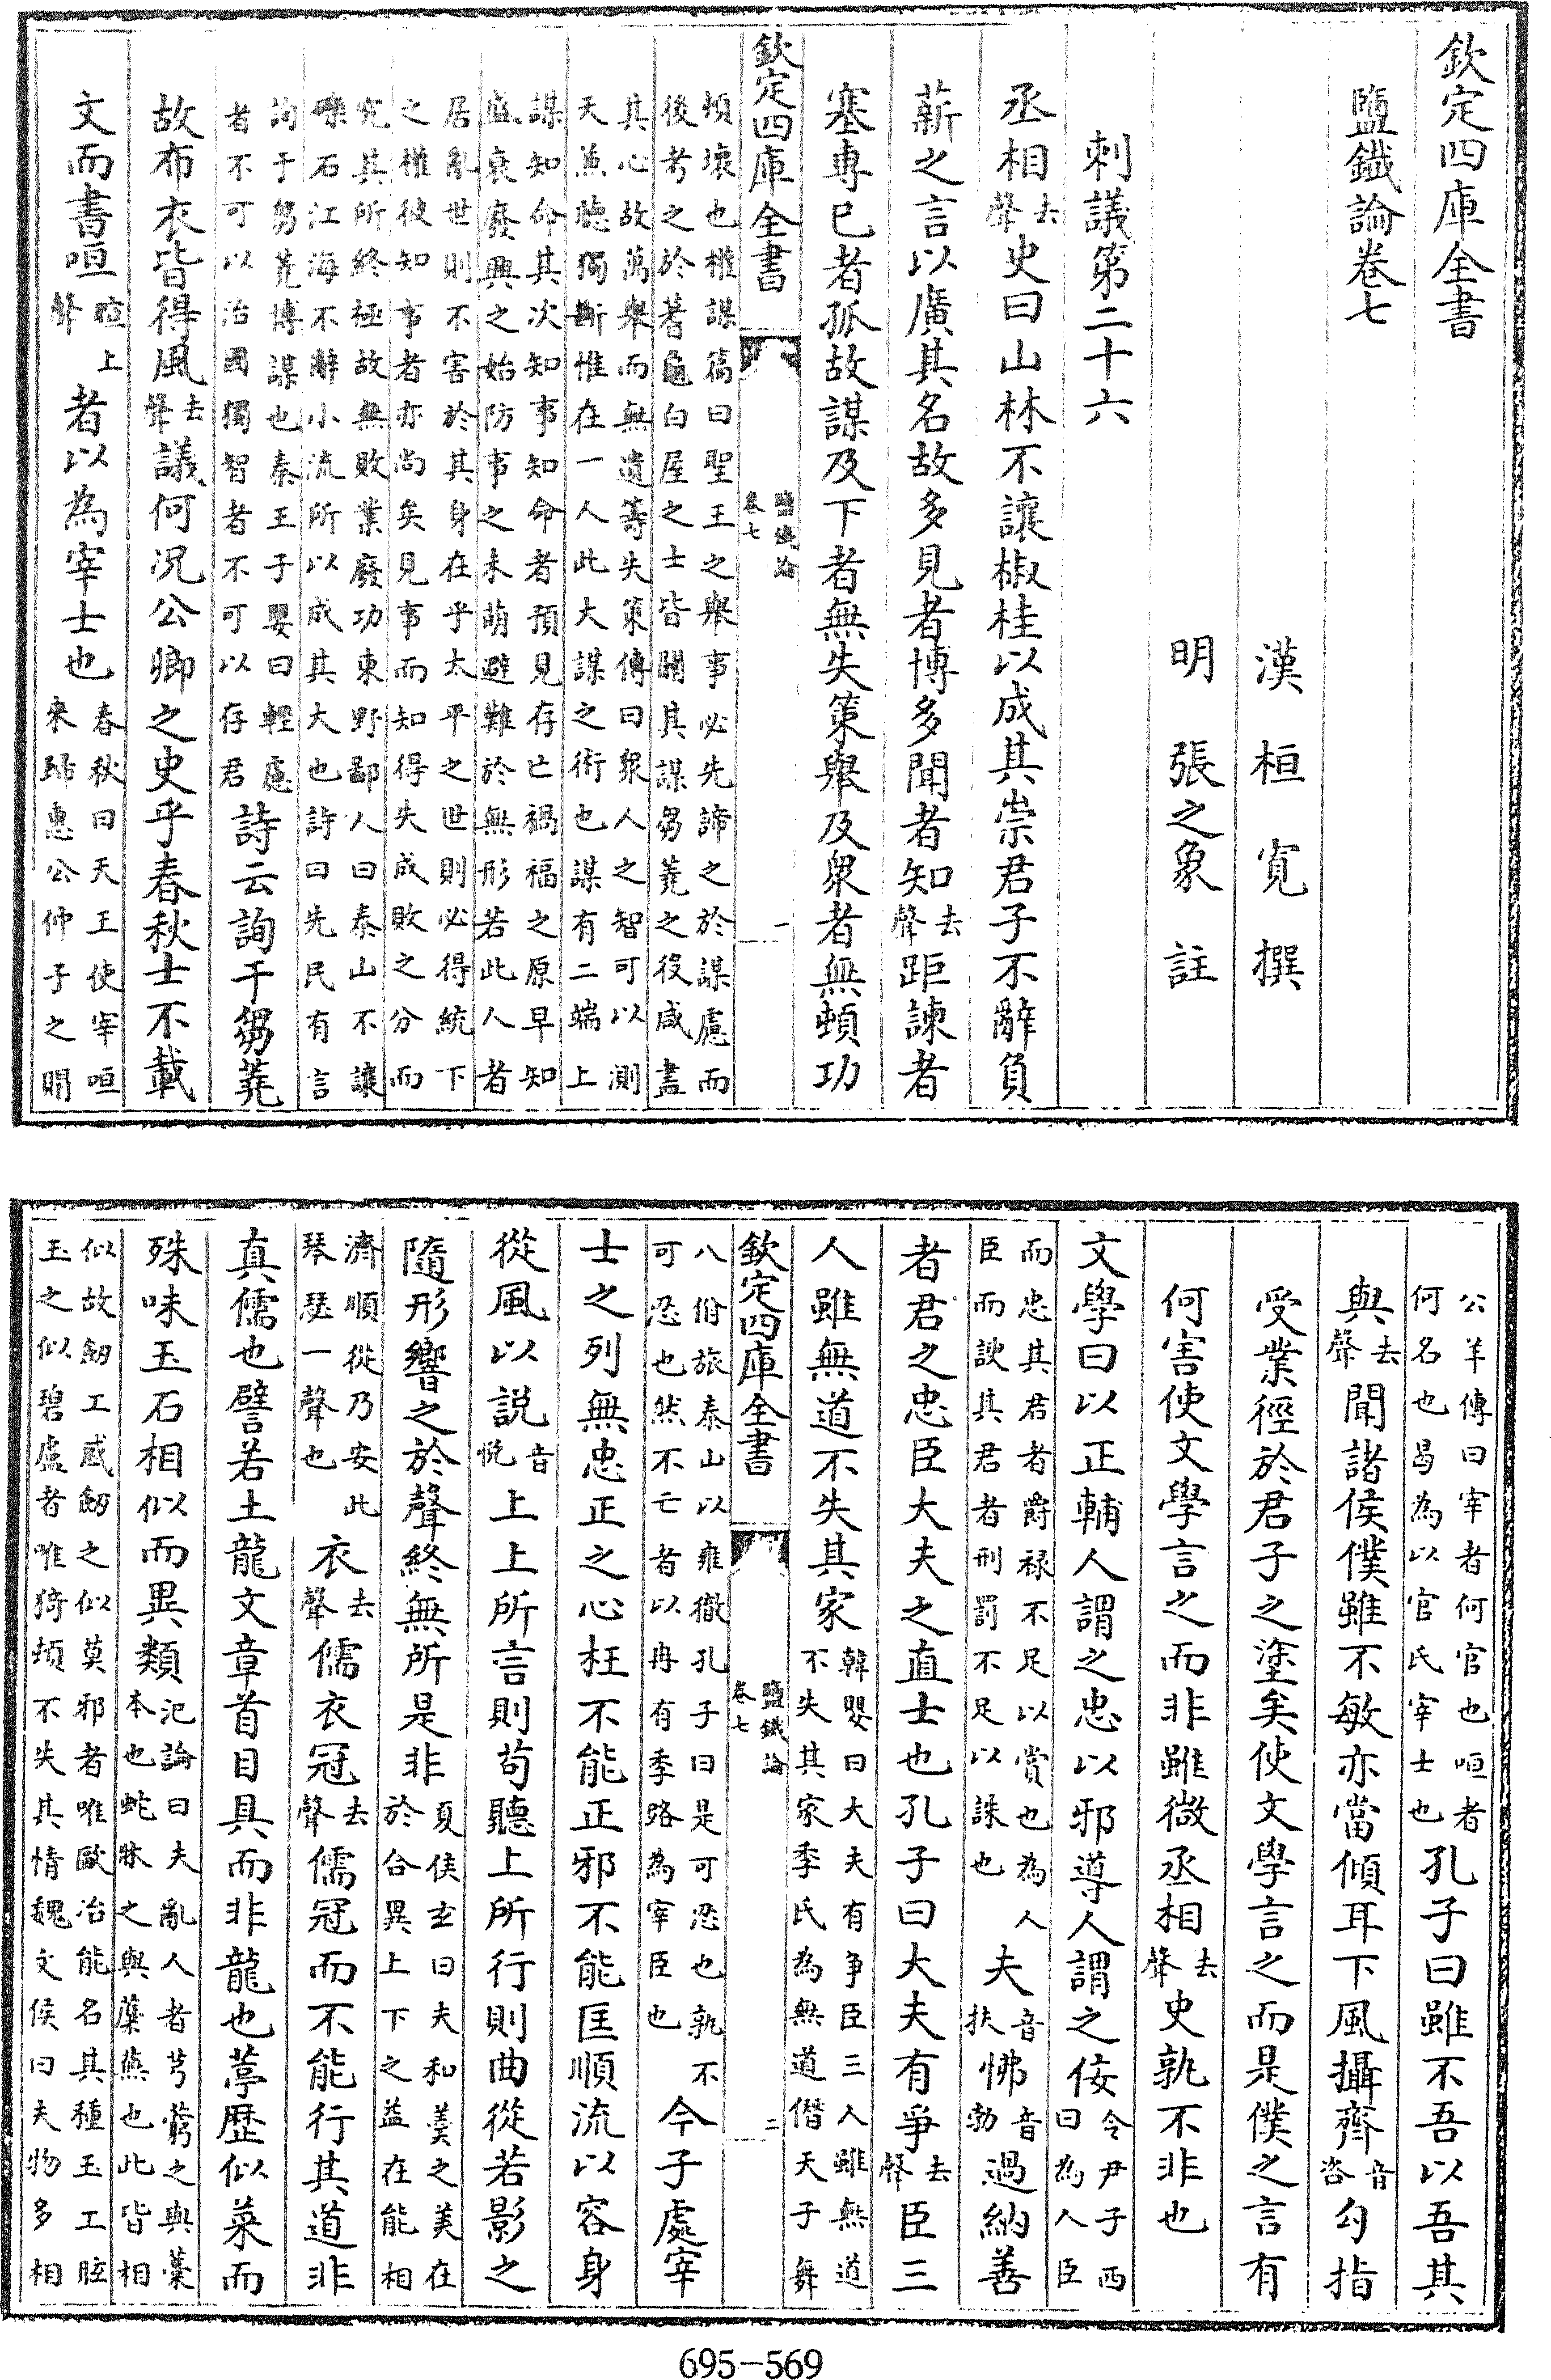 欽定四庫全書
鹽鐵論卷七
漢　桓　寛　撰
明　張之象　註
刺議第二十六
丞相去聲史曰山林不讓椒桂以成其崇君子不辭負
薪之言以廣其名故多見者博多聞者知去聲距諫者
塞專已者孤故謀及下者無失策舉及衆者無頓功
欽定四庫全書　鹽鐵論卷七　一
頓壞也權謀篇曰聖王之舉事必先諦之於謀慮而
後考之於蓍龜白屋之士皆關其謀芻蕘之役咸盡
其心故萬舉而無遺籌失策傳曰衆人之智可以測
天兼聽獨斷惟在一人此大謀之術也謀有二端上
謀知命其次知事知命者預見存亡禍福之原早知
盛衰廢興之始防事之未萌避難於無形若此人者
居亂世則不害於其身在乎太平之世則必得統下
之權彼知事者亦尚矣見事而知得失成敗之分而
究其所終極故無敗業廢功東野鄙人曰泰山不讓
礫石江海不辭小流所以成其大也詩曰先民有言
詢于芻蕘博謀也秦王子嬰曰輕慮
者不可以治國獨智者不可以存君詩云詢于芻蕘
故布衣皆得風去聲議何况公卿之史乎春秋士不載
文而書咺暄上聲者以為宰士也春秋曰天王使宰咺
来歸惠公仲子之賵
公羊傳曰宰者何官也咺者
何名也曷為以官氏宰士也孔子曰雖不吾以吾其
與去聲聞諸侯僕雖不敏亦當傾耳下風攝齊音咨勾指
受業徑於君子之塗矣使文學言之而是僕之言有
何害使文學言之而非雖微丞相去聲史孰不非也
文學曰以正輔人謂之忠以邪導人謂之佞令尹子西
曰為人臣
而忠其君者爵祿不足以賞也為人
臣而諛其君者刑罰不足以誅也夫音扶怫音勃過納善
者君之忠臣大夫之直士也孔子曰大夫有爭去聲臣三
人雖無道不失其家韓嬰曰大夫有争臣三人雖無道
不失其家季氏為無道僭天子舞
欽定四庫全書　鹽鐵論卷七　二
八佾旅泰山以雍徹孔子曰是可忍也孰不
可忍也然不亡者以冉有季路為宰臣也今子處宰
士之列無忠正之心枉不能正邪不能匡順流以容身
從風以説音悦上上所言則苟聽上所行則曲從若影之
隨形響之於聲終無所是非夏侯玄曰夫和羹之美在
於合異上下之益在能相
濟順從乃安此
琴瑟一聲也衣去聲儒衣冠去聲儒冠而不能行其道非
真儒也譬若土龍文章首目具而非龍也葶歴似菜而
殊味玉石相似而異類氾論曰夫亂人者芎藭之與藁
本也蛇牀之與蘼蕪也此皆相
似故劒工惑劒之似莫邪者唯歐冶能名其種玉工眩
玉之似碧盧者唯猗頓不失其情魏文侯曰夫物多相
695-569